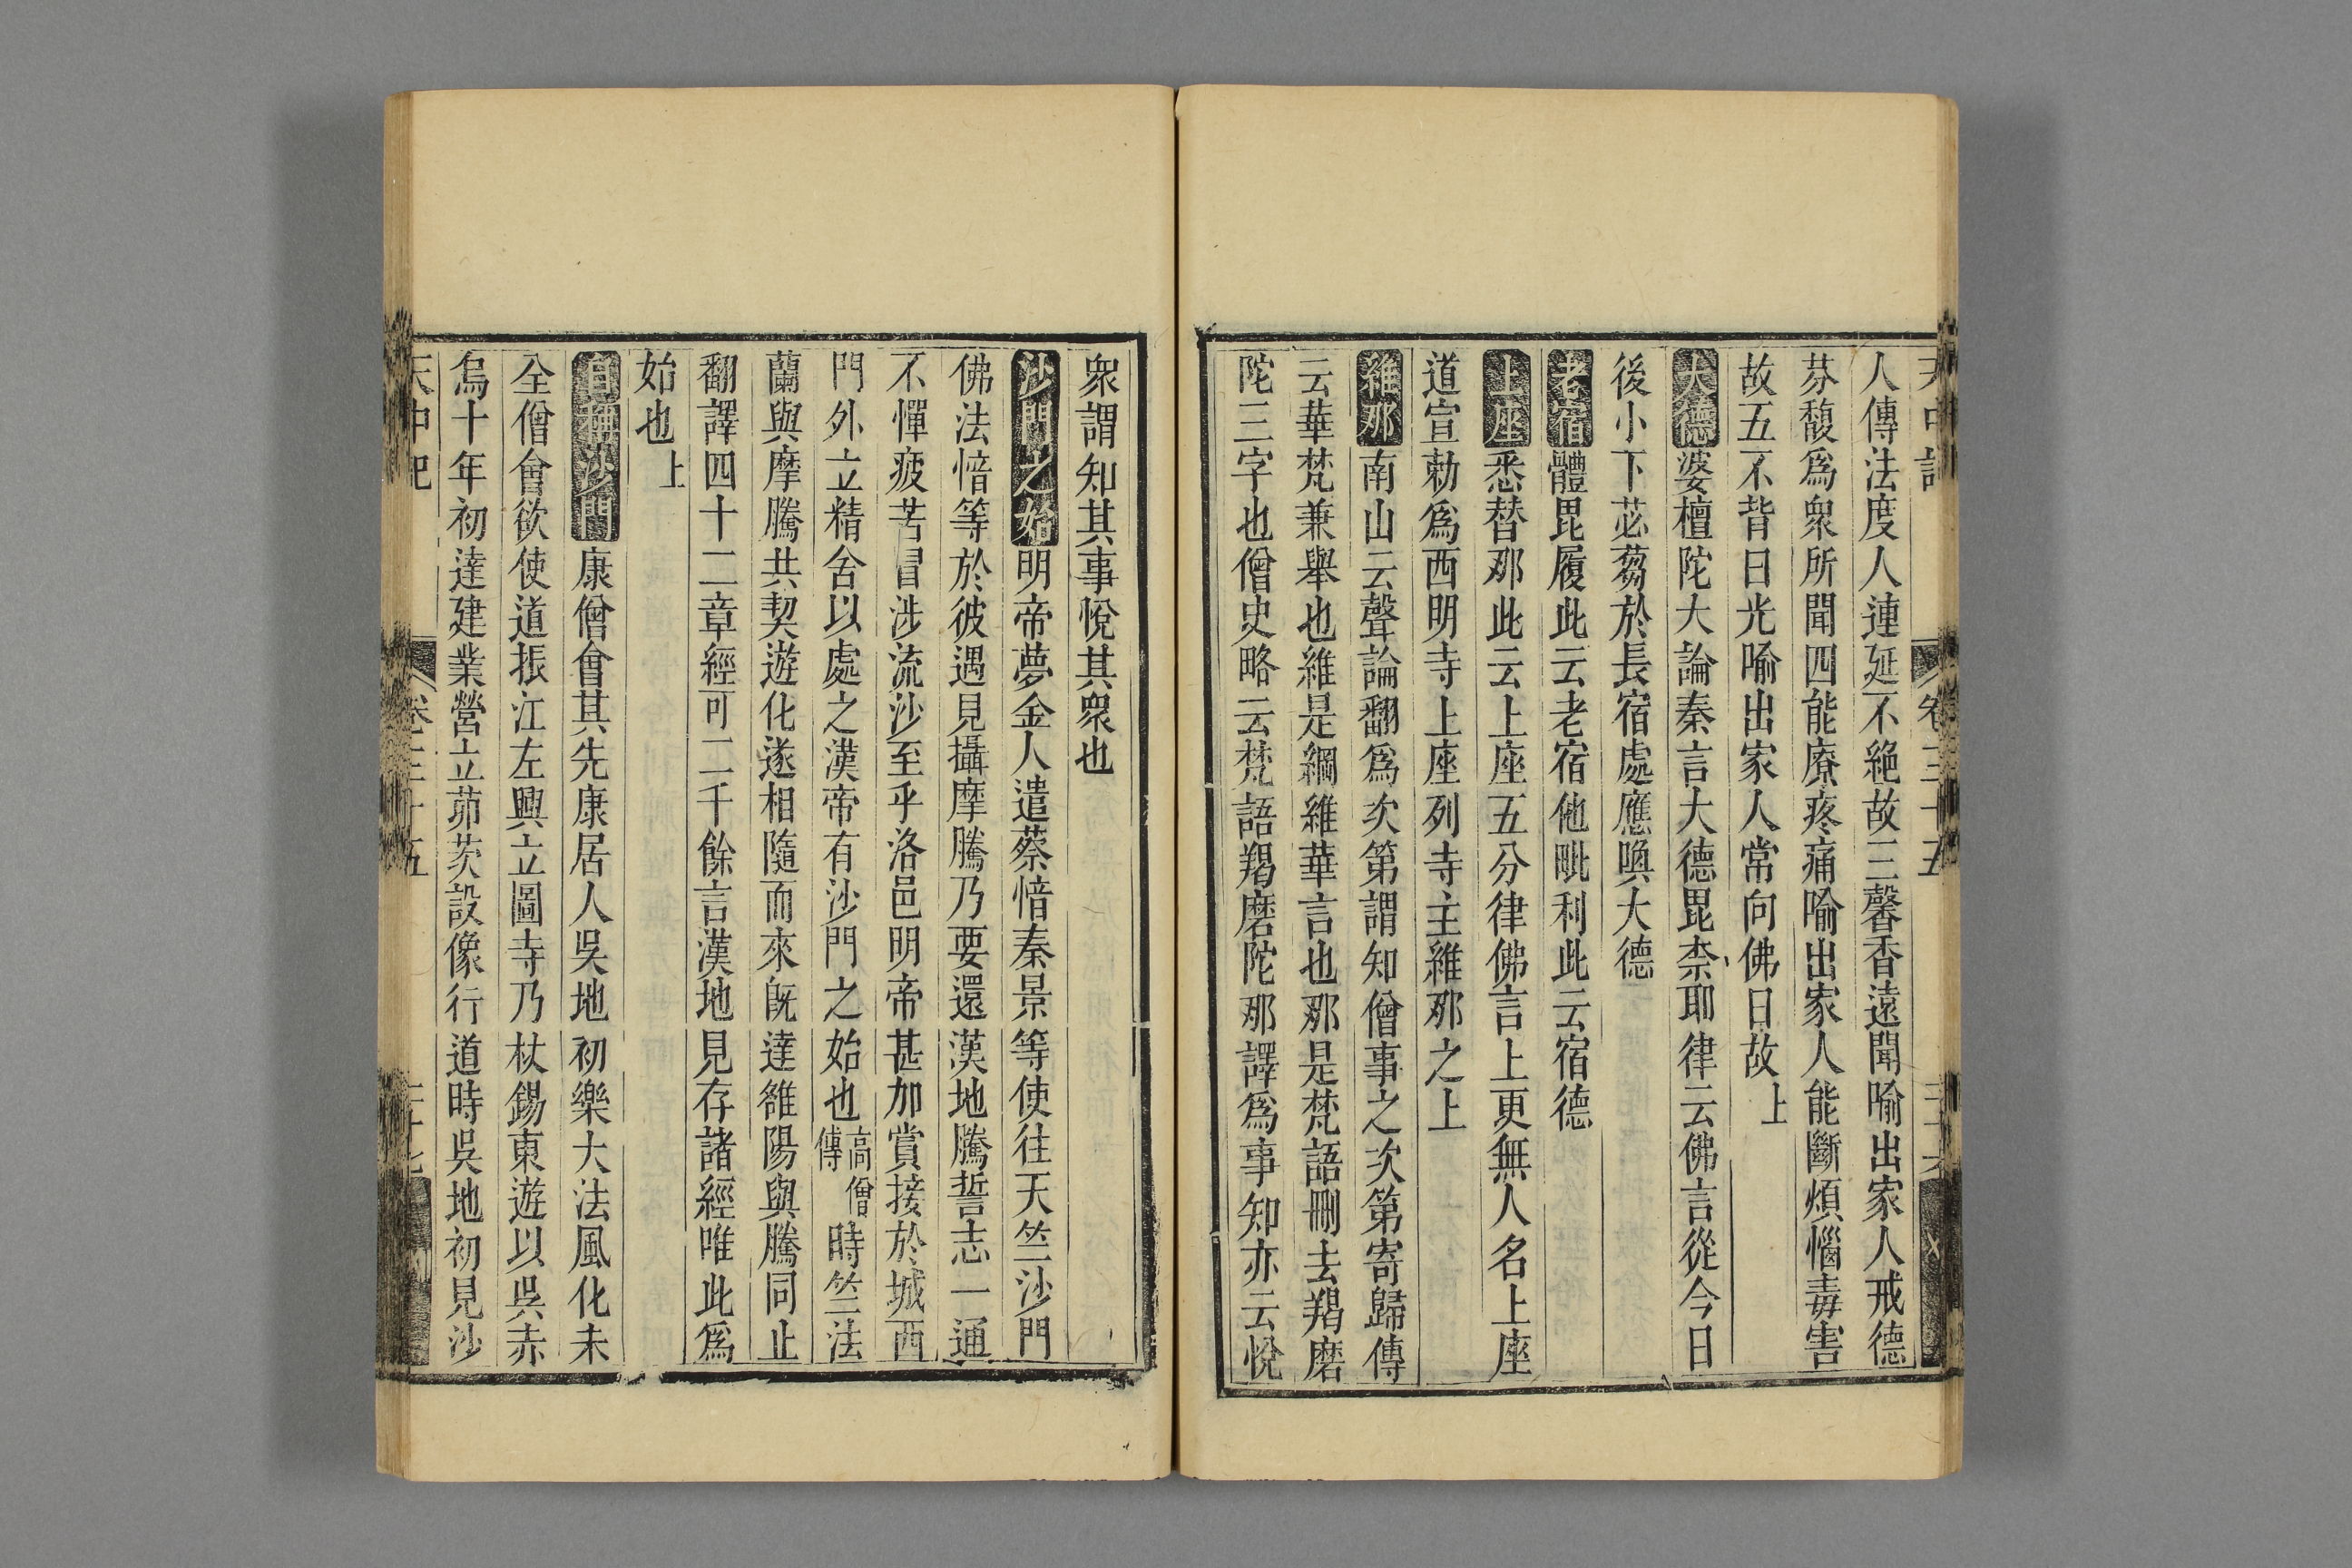 天中記 卷三十五
人傳法度人連延不絶故三馨香遠聞喻出家人戒德
芬馥爲衆所聞四能療疼痛喻出家人能斷煩惱毒害
故五不背日光喻出家人常向佛日故上
大德婆檀陀大論秦言大德毘柰耶律云佛言從今日
後小下苾蒭於長宿處應喚大德
老宿體毘履此云老宿他毗利此云宿德
上座悉替那此云上座五分律佛言上更無人名上座
道宣勅爲西明寺上座列寺主維那之上
維那南山云聲論翻爲次第謂知僧事之次第寄歸傳
云華梵兼舉也維是綱維華言也那是梵語刪去羯磨
陀三字也僧史略云梵語羯磨陀那譯爲事知亦云悅
衆謂知其事悅其衆也
沙門之始明帝夢金人遣蔡愔秦景等使往天竺沙門
佛法愔等於彼遇見攝摩騰乃要還漢地騰誓志一通
不憚疲苦冒涉流沙至乎洛邑明帝甚加賞接於城西
門外立精舍以處之漢帝有沙門之始也高僧傳時竺法
蘭與摩騰共契遊化遂相隨而來旣達雒陽與騰同止
翻譯四十二章經可二千餘言漢地見存諸經唯此爲
始也上
自稱沙門康僧會其先康居人吳地初樂大法風化未
全僧會欲使道振江左興立圖寺乃杖錫東遊以吳赤
烏十年初達建業營立茆茨設像行道時吳地初見沙
天中記 卷三十五